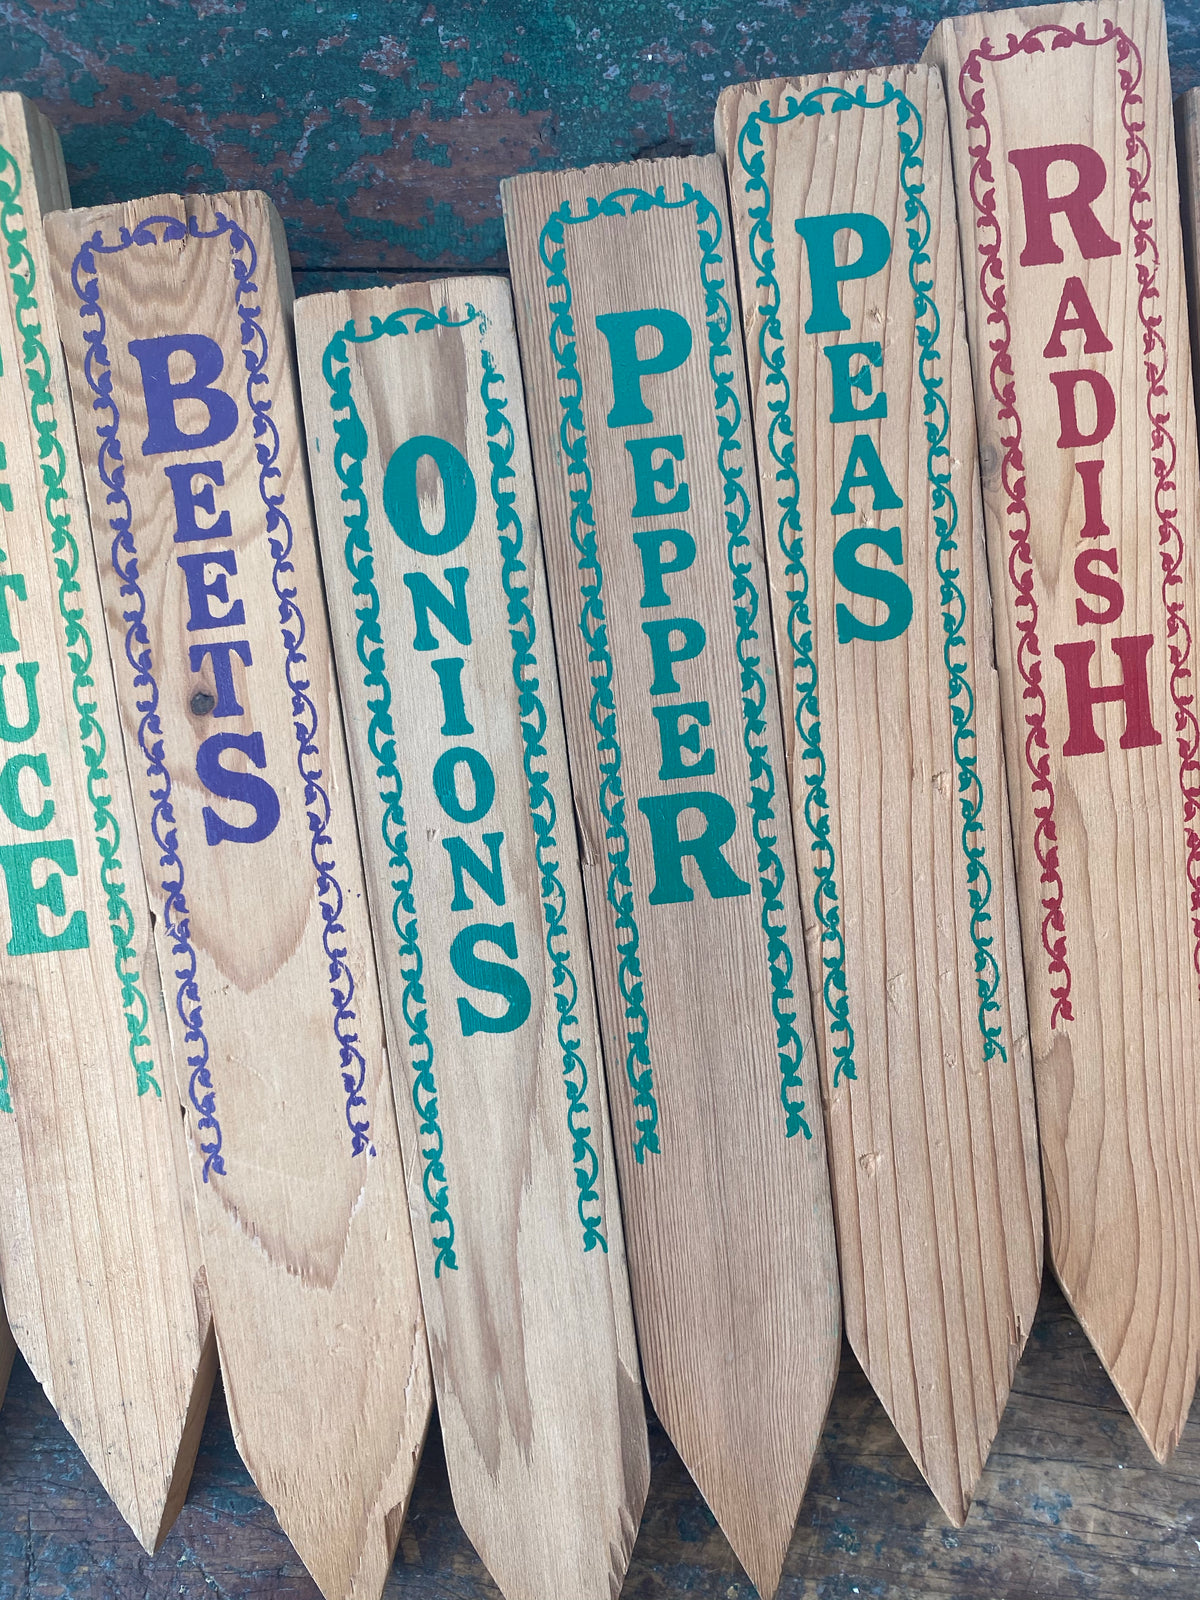 LETTUCE
BEETS
ONIONS
PEPPER
PEAS
RADISH